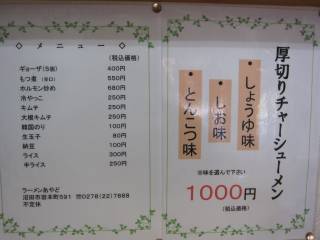 ◇ メニュー ◇
(税込価格)
ギョーザ (5個) 400円
もつ煮 (辛口) 550円
ホルモン炒め 680円
冷やっこ 250円
キムチ 250円
大根キムチ 250円
韓国のり 100円
生玉子 80円
納豆 100円
ライス 300円
半ライス 250円
ラーメンあやど
沼田市岩本町591 ☎0278(22)7888
不定休
厚切りチャーシューメン
・しょうゆ味
・しお味
・とんこつ味
※味を選んで下さい
1000円
(税込価格)